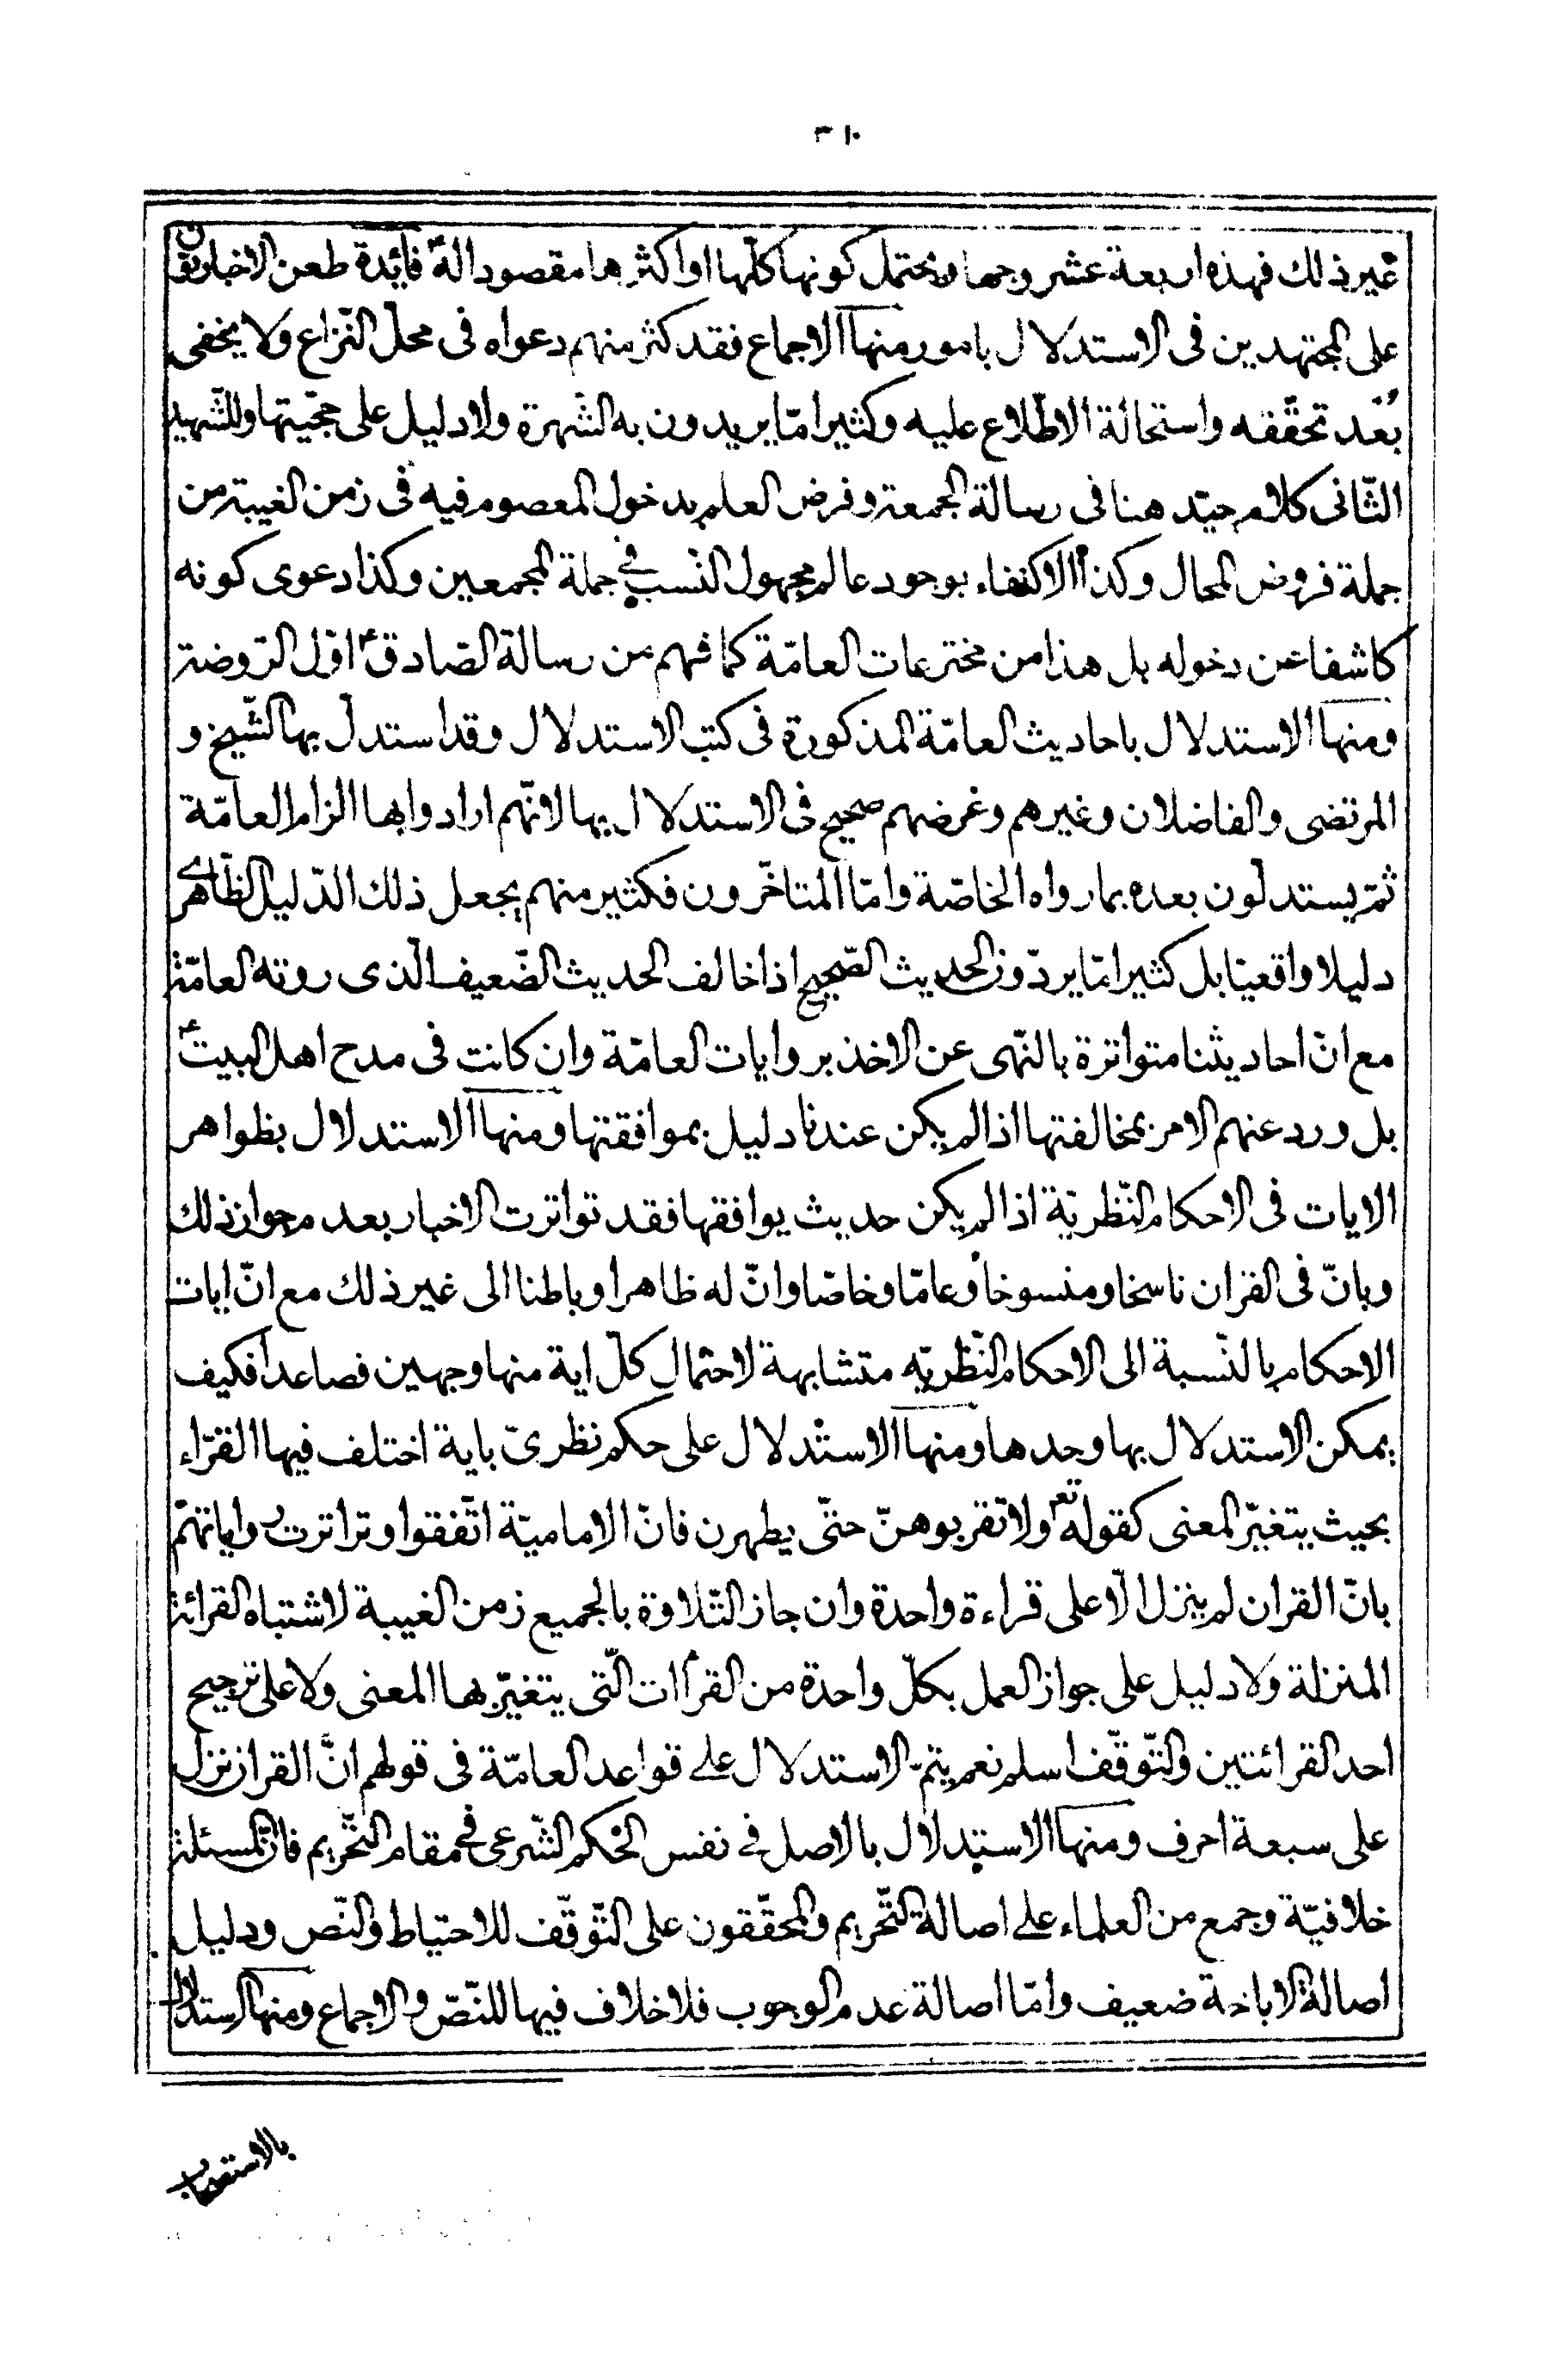 ٣١٠
غير ذلك فهذه اربعة عشر وجها ويحتمل كونها كلّها او اكثرها مقصودا له ع فائدة طعن الاخباريّون
على المجتهدين فى الاستدلال بامور منها الاجماع فقد كثر منهم دعواه فى محلّ النّزاع ولا يخفى
بُعد تحقّقه واستحالة الاطّلاع عليه وكثيرا مّا يريدون به الشّهرة ولا دليل على حجّيتها وللشّهيد
الثّانى كلام جيّد هنا فى رسالة الجمعة وفرض العلم بدخول المعصوم فيه فى زمن الغيبة من
جملة فروض المحال وكذا الاكتفاء بوجود عالم مجهول النّسب فى جملة المجمعين وكذا دعوى كونه
كاشفا عن دخوله بل هذا من مخترعات العامّة كما فهم من رسالة الصّادق ع اوّل الرّوضة
ومنها الاستدلال باحاديث العامّة المذكورة فى كتب الاستدلال وقد استدلّ بها الشّيخ و
المرتضى والفاضلان وغيرهم وغرضهم صحيح فى الاستدلال بها لانّهم ارادوا بها الزام العامّة
ثمّ يستدلّون بعده بما رواه الخاصّة وامّا المتاخّرون فكثير منهم يجعل ذلك الدّليل الظّاهرى
دليلا واقعيّا بل كثيرا مّا يردّون الحديث الصّحيح اذا خالف الحديث الضّعيف الّذى روته العامّة
مع انّ احاديثنا متواترة بالنّهى عن الاخذ بروايات العامّة وان كانت فى مدح اهل البيت ع
بل ورد عنهم الامر بمخالفتها اذا لم يكن عندنا دليل بموافقتها ومنها الاستدلال بظواهر
الايات فى الاحكام النّظريّة اذا لم يكن حديث يوافقها فقد تواترت الاخبار بعدم جواز ذلك
وبانّ فى القران ناسخا ومنسوخا وعامّا وخاصّا وانّ له ظاهرا وباطنا الى غير ذلك مع انّ ايات
الاحكام بالنّسبة الى الاحكام النّظريّه متشابهة لاحتمال كلّ اية منها وجهين فصاعدا فكيف
يمكن الاستدلال بها وحدها ومنها الاستدلال على حكم نظرىّ باية اختلف فيها القرّاء
بحيث يتغيّر المعنى كقوله تع ولا تقربوهنّ حتّى يطهرن فانّ الاماميّة اتّفقوا وتواترت رواياتهم
بانّ القران لم ينزل الّا على قراءة واحدة وان جاز التّلاوة بالجميع زمن الغيبة لاشتباه القرائة
المنزلة ولا دليل على جواز العمل بكلّ واحدة من القراات الّتى يتغيّر بها المعنى ولا على ترجيح
احد القرائتين والتّوقّف اسلم نعم يتمّ الاستدلال على قواعد العامّة فى قولهم انّ القران نزل
على سبعة احرف ومنها الاستدلال بالاصل فى نفس الحكم الشّرعى فى مقام التّحريم فانّ المسئلة
خلافيّة وجمع من العلماء على اصالة التّحريم والمحقّقون على التّوقّف للاحتياط والنّص ودليل
اصالة الاباحة ضعيف وامّا اصالة عدم الوجوب فلا خلاف فيها للنّصّ والاجماع ومنها الاستدلال
بالاستصحاب